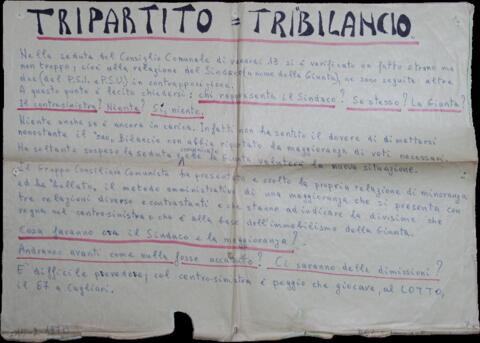 TRIPARTITO = TRIBILANCIO.
Nella seduta del Consiglio Comunale di venerdì 13 si è verificato un fatto strano ma
non troppo; cioè alla relazione del Sindaco (a nome della Giunta), ne sono seguite altre
due (del P.S.I. e P.S.U.) in contrapposizione.
A questo punto è lecito chiedersi: chi rappresenta il Sindaco? Se stesso? La Giunta?
Il centrosinistra? Niente? Sì, niente.
Niente anche se è ancora in carica. Infatti non ha sentito il dovere di dimettersi
nonostante il "suo" Bilancio non abbia riportato la maggioranza di voti necessari.
Ha soltanto sospeso la seduta comunicando che la Giunta valuterà la nuova situazione.
Il Gruppo Consiliare Comunista ha presentato e svolto la propria relazione di minoranza
ed ha "bollato" il metodo amministrativo di una maggioranza che si presenta con
tre relazioni diverse e contrastanti e che stanno ad indicare la divisione che
regna nel centro-sinistra e che è alla base dell'immobilismo della Giunta.
Cosa faranno ora il Sindaco e la maggioranza?
Andranno avanti come nulla fosse accaduto? Ci saranno delle dimissioni?
E' difficile prevedere; col centro-sinistra è peggio che giocare, al LOTTO,
il 67 a Cagliari.